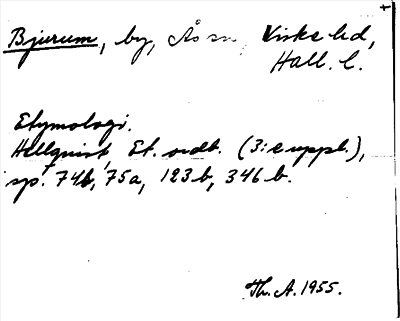 Bjurum, by, Ås sn, Viske hd,
Hall. l.
Etymologi.
Hellquist, Et. ordb. (3:e uppl.),
sp. 74b, 75a, 123b, 346b.
Th. A. 1955.